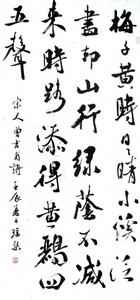 梅子黃時日日晴小溪泛
盡却山行綠蔭不減
來時路添得黃鸝四
五聲
宋人曾吉甫詩壬辰